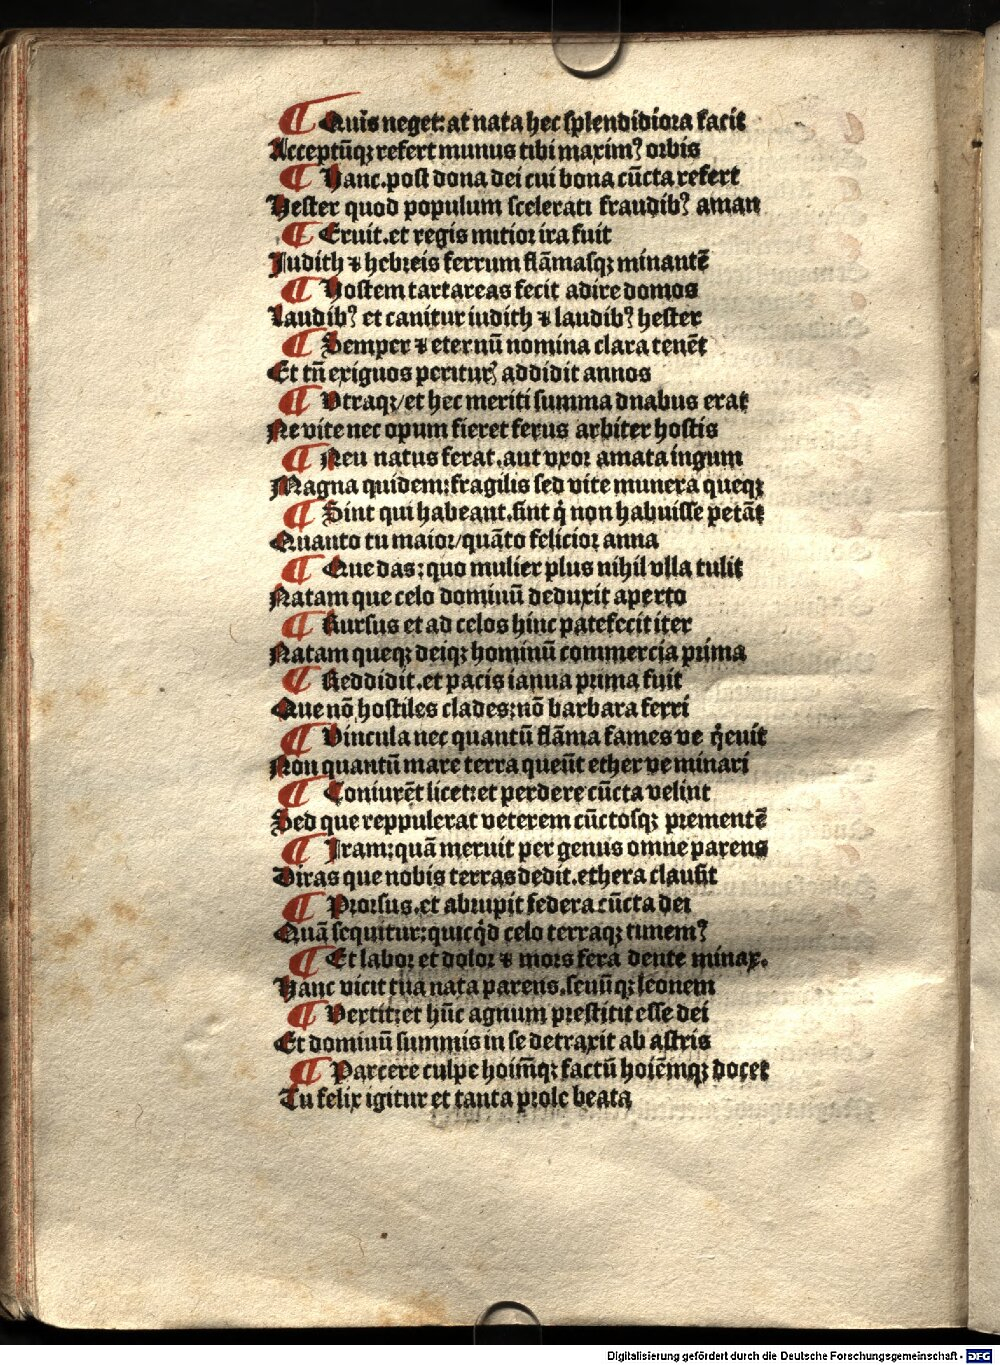 ¶ Quis neget: at nata hec splendidiora facit
Acceptūqꝫ refert munus tibi maximꝰ orbis
¶ Hanc. post dona dei cui bona cūcta refert
Hester quod populum scelerati fraudibꝰ aman
¶ Eruit. et regis mitior ira fuit
Judith ⁊ hebreis ferrum flāmasqꝫ minantē
¶ Hostem tartareas fecit adire domos
Laudibꝰ et canitur iudith ⁊ laudibꝰ hester
¶ Semper ⁊ eternū nomina clara tenēt
Et tn̄ exiguos periturꝰ addidit annos
¶ Vtraqꝫ/ et hec meriti summa duabus erat
Ne vite nec opum fieret ferus arbiter hostis
¶ Neu natus ferat. aut vxor amata iugum
Magna quidem: fragilis sed vite munera queqꝫ
¶ Sint qui habeant. sint q̇ non habuisse petāt
Quanto tu maior/ quāto felicior anna
¶ Que das: quo mulier plus nihil vlla tulit
Natam que celo dominū deduxit aperto
¶ Rursus et ad celos hinc patefecit iter
Natam queqꝫ deiqꝫ hominū commercia prima
¶ Reddidit. et pacis ianua prima fuit
Que nō hostiles clades: nō barbara ferri
¶ Vincula nec quantū flāma fames ve q̇euit
Non quantū mare terra queūt ether ve minari
¶ Coniurēt licet: et perdere cūcta velint
Sed que reppulerat veterem cūctosqꝫ prementē
¶ Iram: quā meruit per genus omne parens
Diras que nobis terras dedit. ethera clausit
¶ Prorsus. et abrupit federa cūcta dei
Quā sequitur: quicq̇d celo terraqꝫ timemꝰ
¶ Et labor et dolor ⁊ mors fera dente minax.
Hanc vicit tua nata parens. seuūqꝫ leonem
¶ Vertit: et hūc agnum prestitit esse dei
Et dominū summis in se detraxit ab astris
¶ Parcere culpe hoim̄qꝫ factū hoiēmqꝫ docet
Tu felix igitur et tanta prole beata
Digitalisierung gefördert durch die Deutsche Forschungsgemeinschaft - DFG